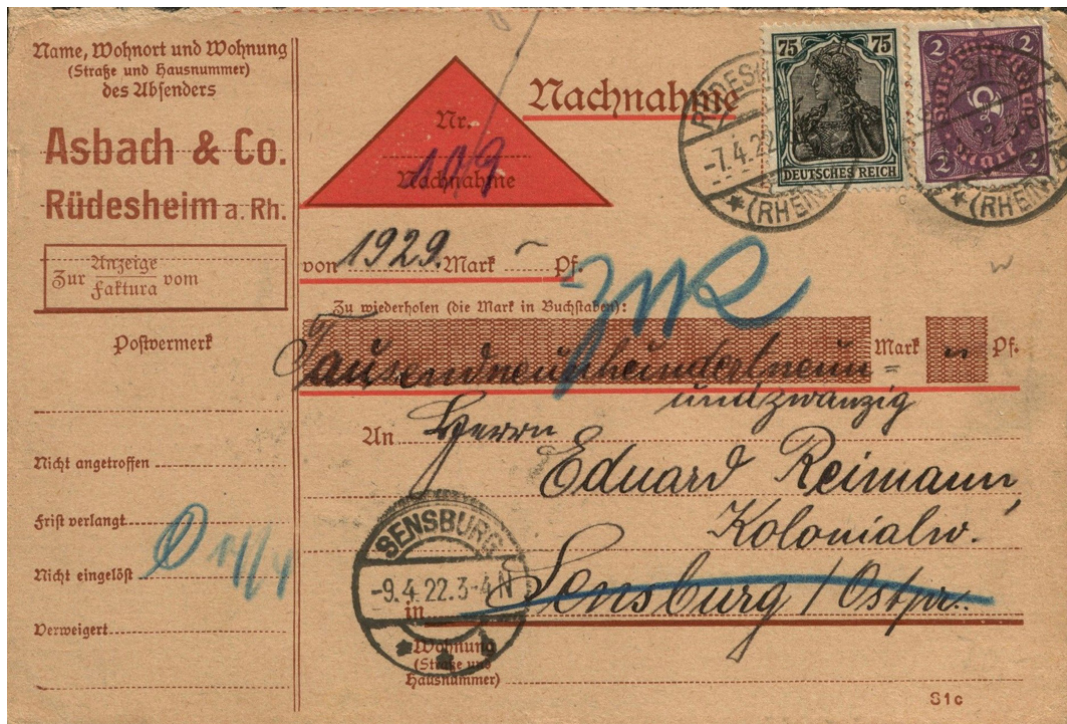 Name, Wohnort und Wohnung
(Straße und Hausnummer)
des Absenders
Asbach & Co.
Rüdesheim a. Rh.
Zur Anzeige
Faktura vom
Postvermerk
Nicht angetroffen
Frist verlangt
Nicht eingelöst
Verweigert
Nr.
119
Nachnahme
Nachnahme
75 75
DEUTSCHES REICH
2 2
Deutsches Reich
2
Mark
2 2
RÜDESH
-7.4.22
(RHEIN)
(RHEIN)
von 1929. Mark - Pf.
Zu wiederholen (die Mark in Buchstaben):
Tausendneunhundertneun= Mark " Pf.
undzwanzig
An Herrn
Eduard Reimann,
Kolonialw.
in Sensburg / Ostpr.
Wohnung
(Straße und
Hausnummer)
SENSBURG
-9.4.22.3-4 N
S1c